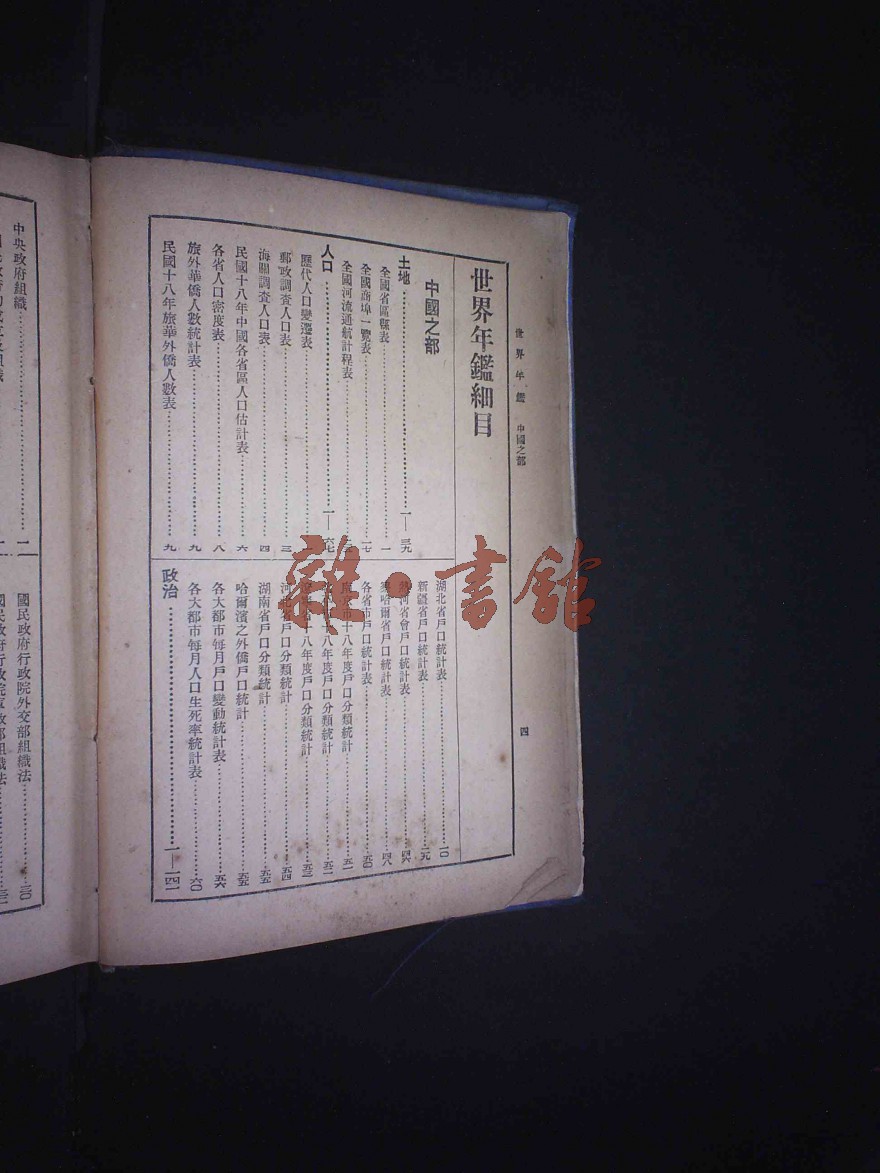 世界年鑑 中國之部
四
世界年鑑細目
中國之部
土地……一—三九
全國省區縣表……一
全國商埠一覽表……一七
全國河流通航計程表
人口……一—六七
歷代人口變遷表
郵政調查人口表……三
海關調查人口表……四
民國十八年中國各省區人口估計表……六
各省人口密度表……八
旅外華僑人數統計表……九
民國十八年旅華外僑人數表……九
湖北省戶口統計表……一〇
新疆省戶口統計表……二九
河省會戶口統計表……四六
哈爾省戶口統計表……四八
各省市戶口統計表……五〇
南京市十八年度戶口分類統計……五一
十八年度戶口分類統計……五二
十八年度戶口分類統計……五三
河北省戶口分類統計……五四
湖南省戶口分類統計……五五
哈爾濱之外僑戶口統計……五五
各大都市每月戶口變動統計表……五六
各大都市每月人口生死率統計表……六〇
政治……一—一四二
中央政府組織……一
國民政府行政院外交部組織法……二〇
雜·書館